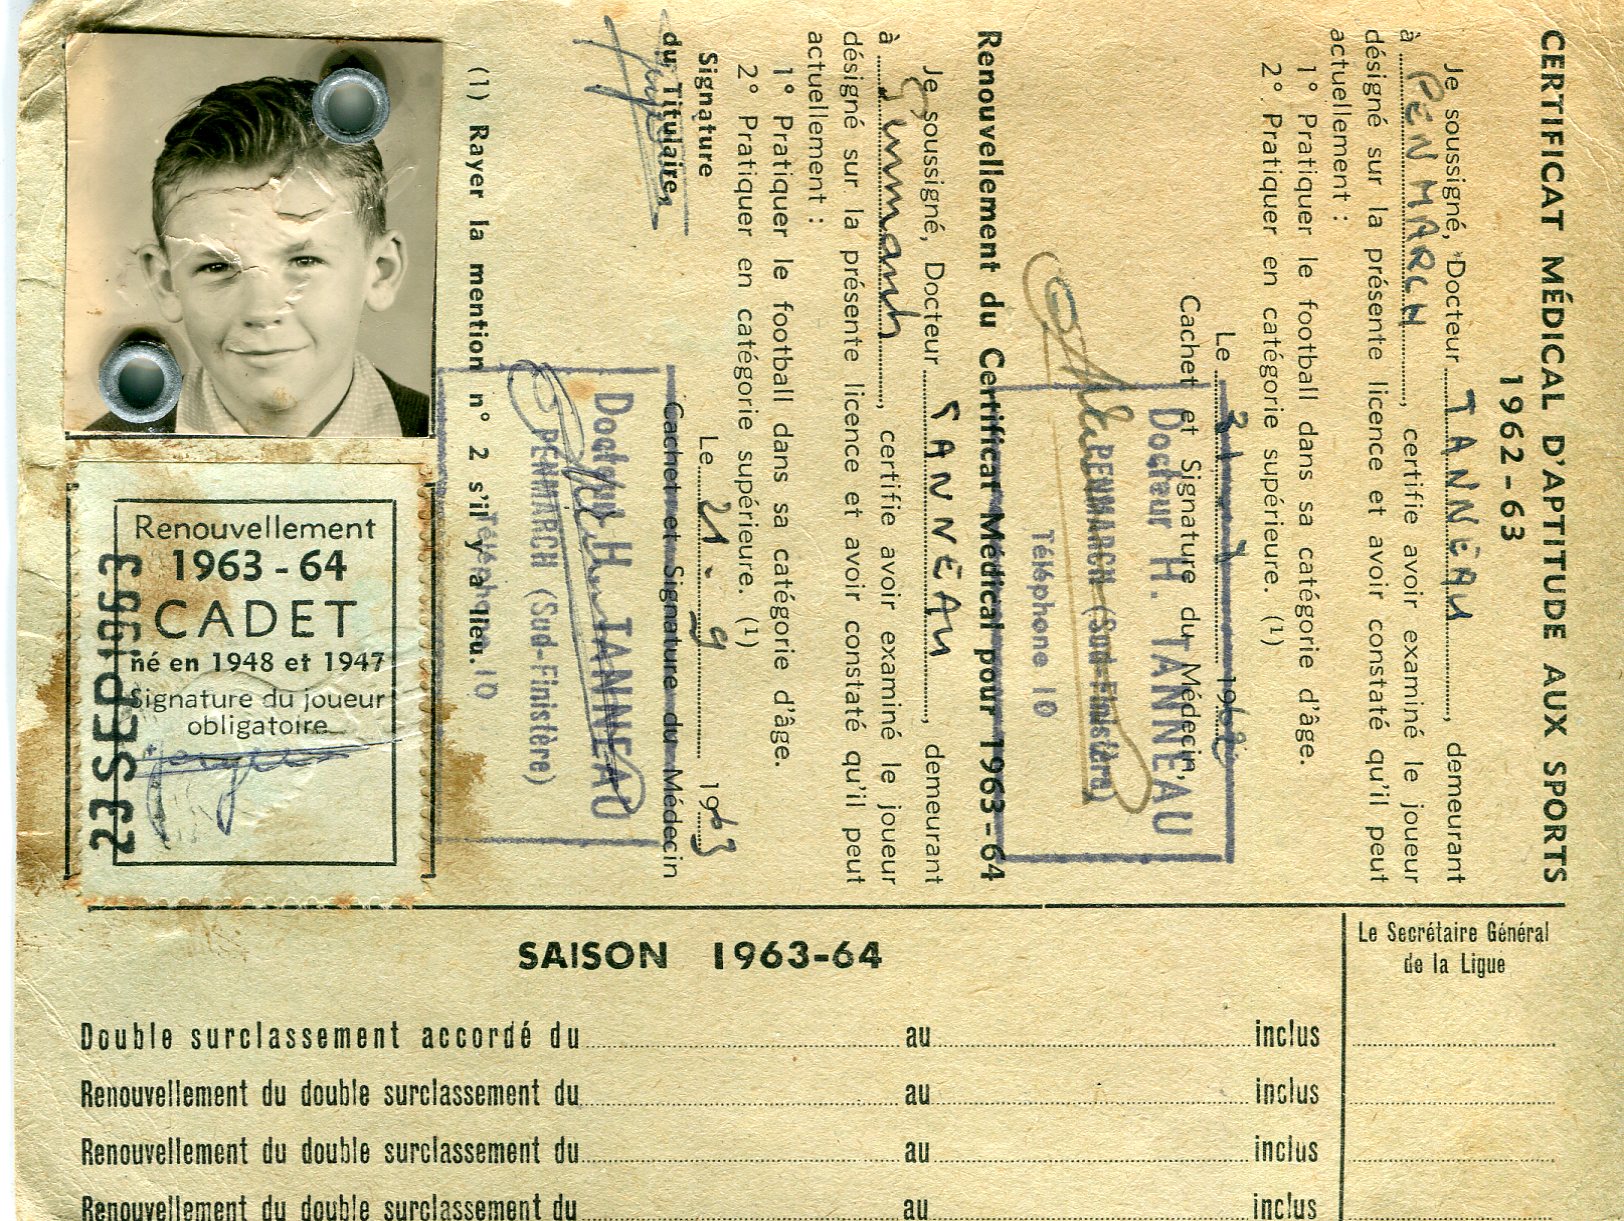 CERTIFICAT MÉDICAL D'APTITUDE AUX SPORTS
1962-63
Je soussigné, Docteur TANNEAU, demeurant
à PENMARCH, certifie avoir examiné le joueur
désigné sur la présente licence et avoir constaté qu'il peut
actuellement :
1° Pratiquer le football dans sa catégorie d'âge.
2° Pratiquer en catégorie supérieure. (1)
Le 1962
Cachet et Signature du Médecin,
Docteur H. TANNEAU
PENMARCH (Sud-Finistère)
Téléphone 10
Renouvellement du Certificat Médical pour 1963-64
Je soussigné, Docteur TANNEAU, demeurant
à Penmarch, certifie avoir examiné le joueur
désigné sur la présente licence et avoir constaté qu'il peut
actuellement :
1° Pratiquer le football dans sa catégorie d'âge.
2° Pratiquer en catégorie supérieure. (1)
Le 21. 9 1963
Signature
du Titulaire,
Cachet et Signature du Médecin
Docteur H. TANNEAU
PENMARCH (Sud-Finistère)
Téléphone 10
(1) Rayer la mention n° 2 s'il y a lieu.
Renouvellement
1963-64
CADET
né en 1948 et 1947
Signature du joueur
obligatoire
23 SEP 1963
SAISON 1963-64
Le Secrétaire Général
de la Ligue
Double surclassement accordé du au inclus
Renouvellement du double surclassement du au inclus
Renouvellement du double surclassement du au inclus
Renouvellement du double surclassement du au inclus